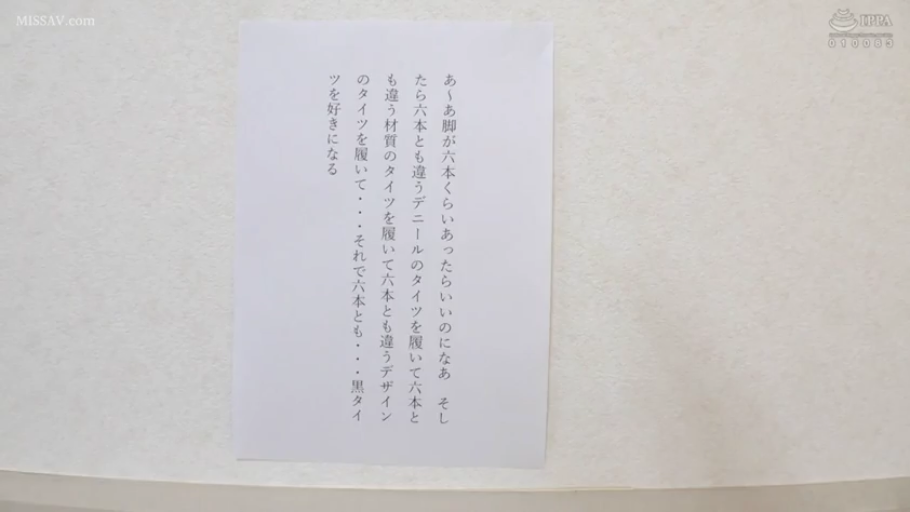 MISSAV.com
IPPA
010083
あ〜あ脚が六本くらいあったらいいのになあ　そし
たら六本とも違うデニールのタイツを履いて六本と
も違う材質のタイツを履いて六本とも違うデザイン
のタイツを履いて・・・それで六本とも・・・黒タイ
ツを好きになる